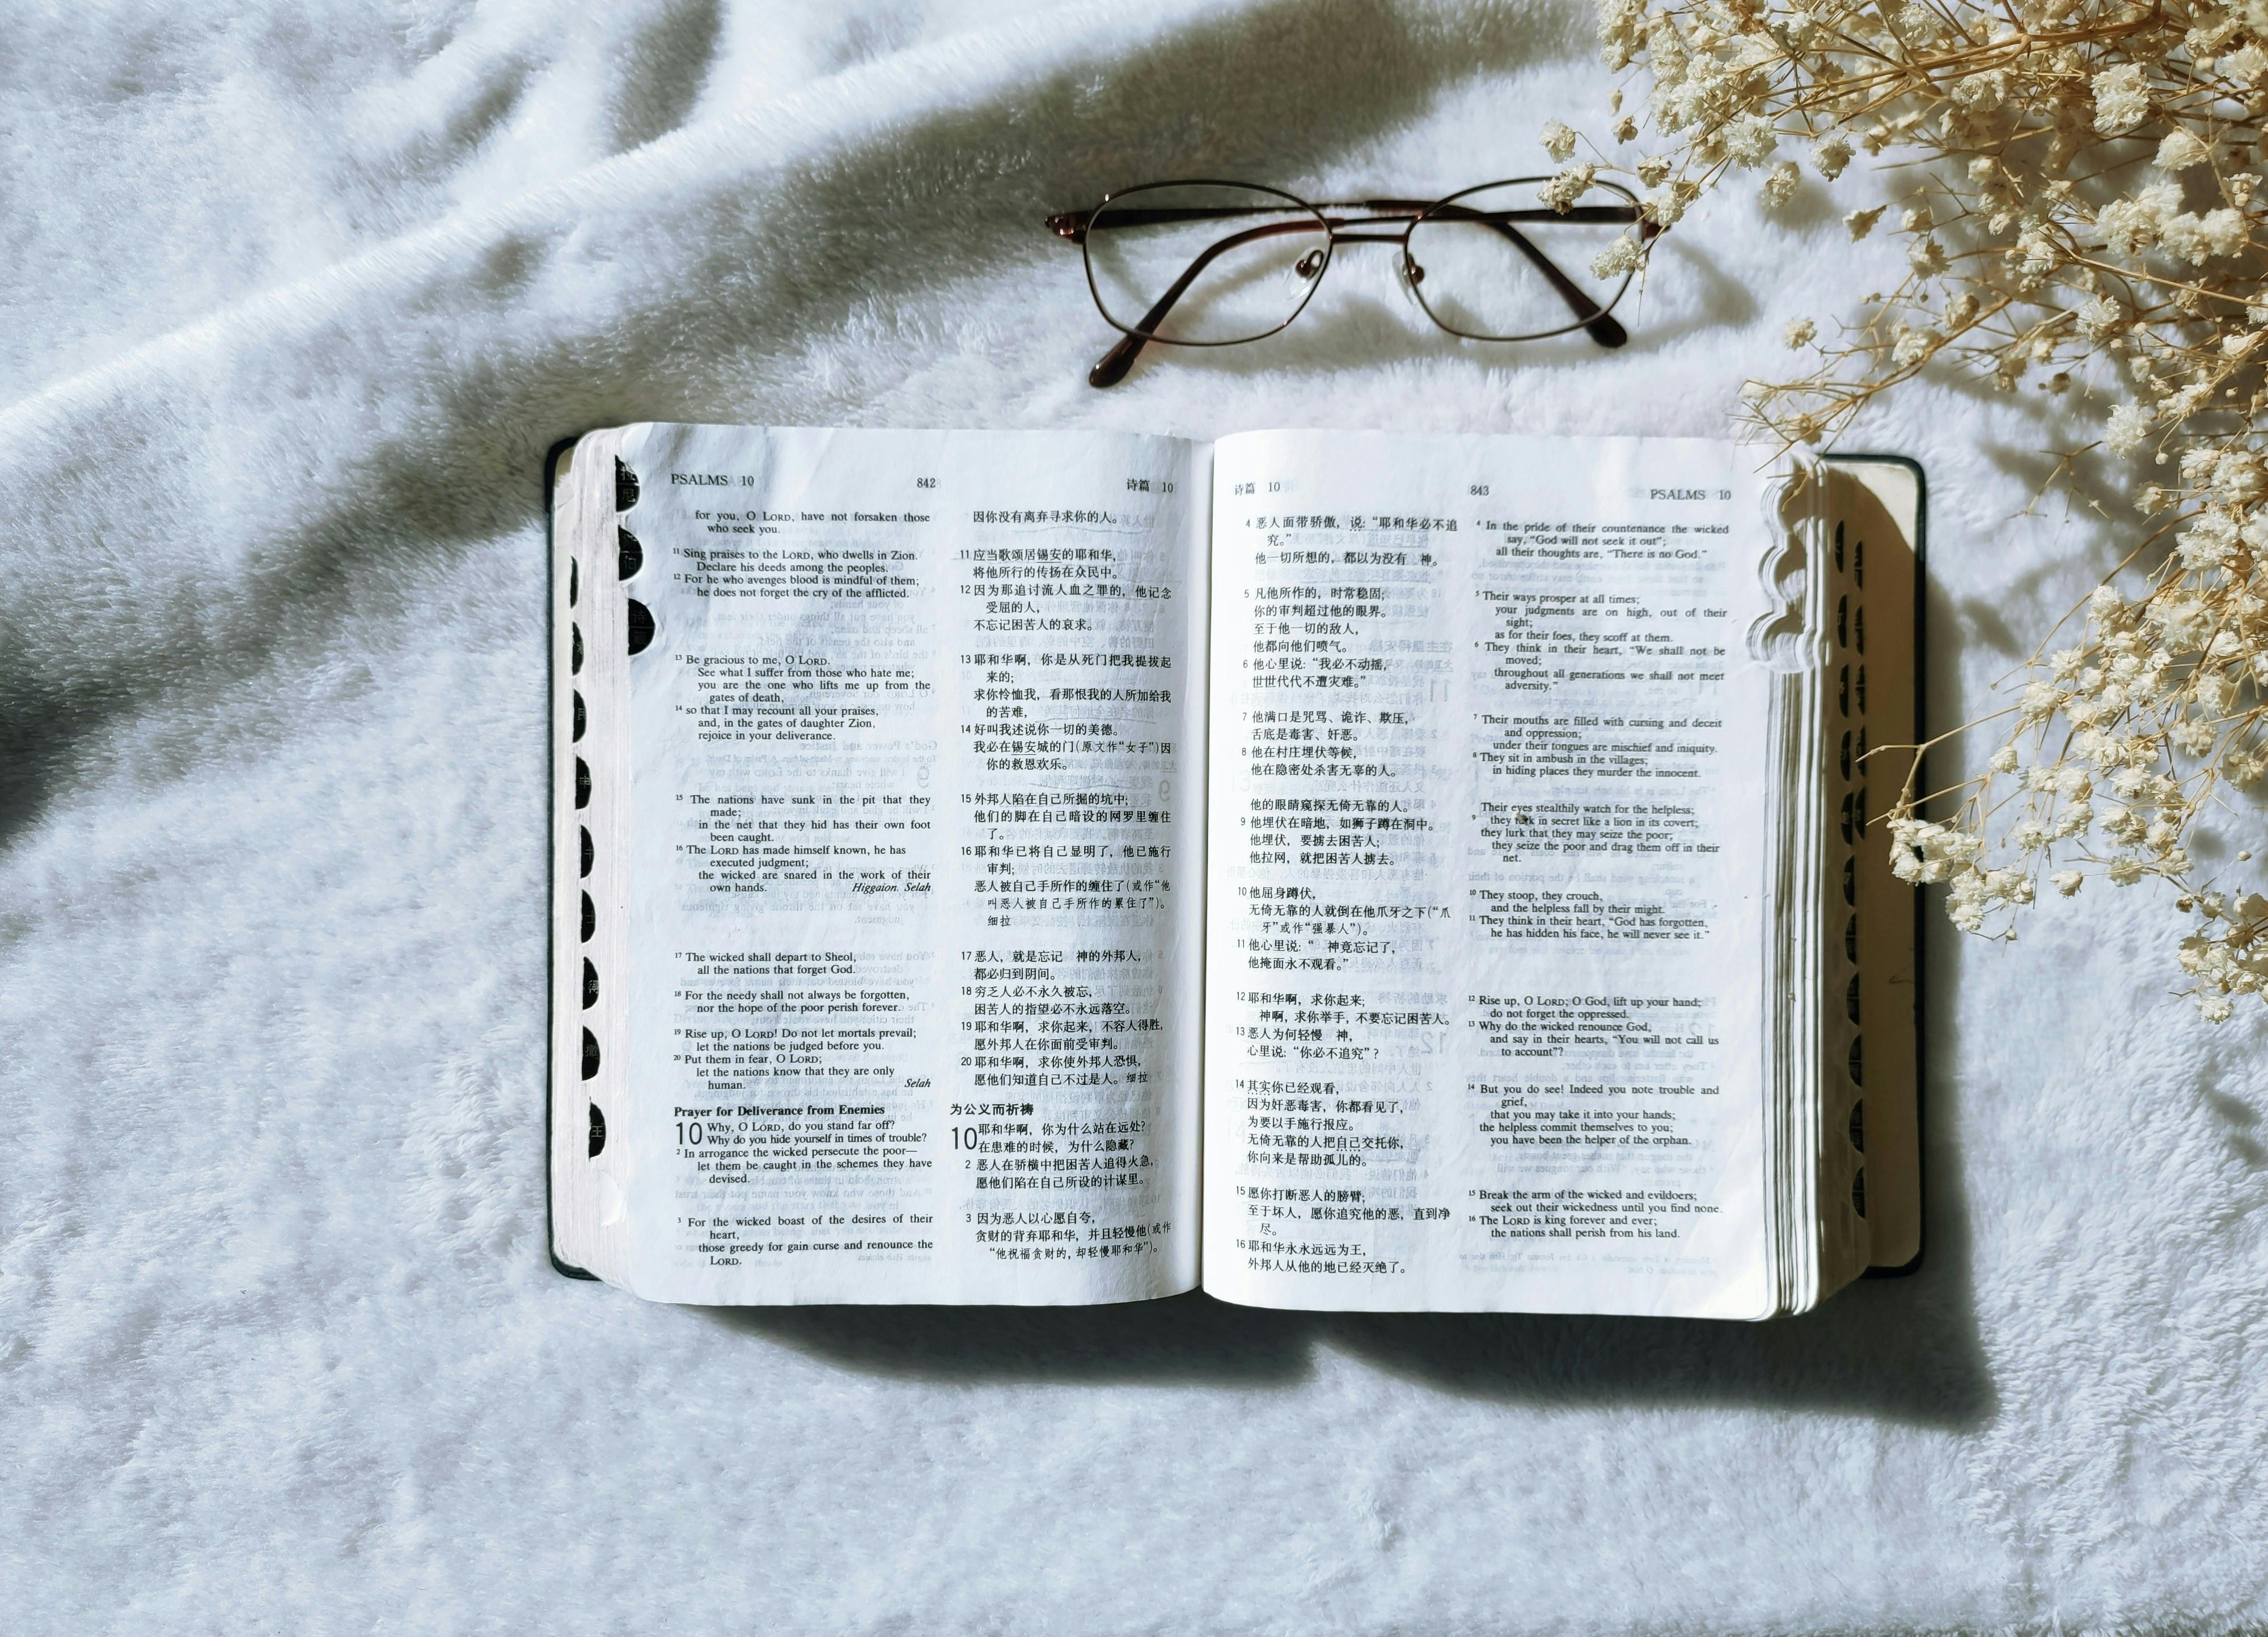 PSALMS 10
842
诗篇 10
for you, O LORD, have not forsaken those
who seek you.
11 Sing praises to the LORD, who dwells in Zion.
Declare his deeds among the peoples.
12 For he who avenges blood is mindful of them;
he does not forget the cry of the afflicted.
13 Be gracious to me, O LORD.
See what I suffer from those who hate me;
you are the one who lifts me up from the
gates of death,
14 so that I may recount all your praises,
and, in the gates of daughter Zion,
rejoice in your deliverance.
15 The nations have sunk in the pit that they
made;
in the net that they hid has their own foot
been caught.
16 The LORD has made himself known, he has
executed judgment;
the wicked are snared in the work of their
own hands. Higgaion. Selah
17 The wicked shall depart to Sheol,
all the nations that forget God.
18 For the needy shall not always be forgotten,
nor the hope of the poor perish forever.
19 Rise up, O LORD! Do not let mortals prevail;
let the nations be judged before you.
20 Put them in fear, O LORD;
let the nations know that they are only
human. Selah
Prayer for Deliverance from Enemies
10 Why, O LORD, do you stand far off?
Why do you hide yourself in times of trouble?
2 In arrogance the wicked persecute the poor—
let them be caught in the schemes they have
devised.
3 For the wicked boast of the desires of their
heart,
those greedy for gain curse and renounce the
LORD.
因你没有离弃寻求你的人。
11 应当歌颂居锡安的耶和华,
将他所行的传扬在众民中。
12 因为那追讨流人血之罪的, 他记念
受屈的人,
不忘记困苦人的哀求。
13 耶和华啊, 你是从死门把我提拔起
来的;
求你怜恤我, 看那恨我的人所加给我
的苦难,
14 好叫我述说你一切的美德。
我必在锡安城的门(原文作“女子”)因
你的救恩欢乐。
15 外邦人陷在自己所掘的坑中;
他们的脚在自己暗设的网罗里缠住
了。
16 耶和华已将自己显明了, 他已施行
审判;
恶人被自己手所作的缠住了(或作“他
叫恶人被自己手所作的累住了”)。
细拉
17 恶人, 就是忘记 神的外邦人,
都必归到阴间。
18 穷乏人必不永久被忘,
困苦人的指望必不永远落空。
19 耶和华啊, 求你起来, 不容人得胜,
愿外邦人在你面前受审判。
20 耶和华啊, 求你使外邦人恐惧,
愿他们知道自己不过是人。细拉
为公义而祈祷
10 耶和华啊, 你为什么站在远处?
在患难的时候, 为什么隐藏?
2 恶人在骄横中把困苦人追得火急,
愿他们陷在自己所设的计谋里。
3 因为恶人以心愿自夸,
贪财的背弃耶和华, 并且轻慢他(或作
“他祝福贪财的, 却轻慢耶和华”)。
诗篇 10
843
PSALMS 10
4 恶人面带骄傲, 说: “耶和华必不追
究。”
他一切所想的, 都以为没有 神。
5 凡他所作的, 时常稳固;
你的审判超过他的眼界。
至于他一切的敌人,
他都向他们喷气。
6 他心里说: “我必不动摇,
世世代代不遭灾难。”
7 他满口是咒骂、诡诈、欺压,
舌底是毒害、奸恶。
8 他在村庄埋伏等候,
他在隐密处杀害无辜的人。
他的眼睛窥探无倚无靠的人。
9 他埋伏在暗地, 如狮子蹲在洞中。
他埋伏, 要掳去困苦人;
他拉网, 就把困苦人掳去。
10 他屈身蹲伏,
无倚无靠的人就倒在他爪牙之下(“爪
牙”或作“强暴人”)。
11 他心里说: “ 神竟忘记了,
他掩面永不观看。”
12 耶和华啊, 求你起来;
神啊, 求你举手, 不要忘记困苦人。
13 恶人为何轻慢 神,
心里说: “你必不追究”?
14 其实你已经观看,
因为奸恶毒害, 你都看见了,
为要以手施行报应。
无倚无靠的人把自己交托你,
你向来是帮助孤儿的。
15 愿你打断恶人的膀臂;
至于坏人, 愿你追究他的恶, 直到净
尽。
16 耶和华永永远远为王,
外邦人从他的地已经灭绝了。
4 In the pride of their countenance the wicked
say, “God will not seek it out”;
all their thoughts are, “There is no God.”
5 Their ways prosper at all times;
your judgments are on high, out of their
sight;
as for their foes, they scoff at them.
6 They think in their heart, “We shall not be
moved;
throughout all generations we shall not meet
adversity.”
7 Their mouths are filled with cursing and deceit
and oppression;
under their tongues are mischief and iniquity.
8 They sit in ambush in the villages;
in hiding places they murder the innocent.
Their eyes stealthily watch for the helpless;
9 they lurk in secret like a lion in its covert;
they lurk that they may seize the poor;
they seize the poor and drag them off in their
net.
10 They stoop, they crouch,
and the helpless fall by their might.
11 They think in their heart, “God has forgotten,
he has hidden his face, he will never see it.”
12 Rise up, O LORD; O God, lift up your hand;
do not forget the oppressed.
13 Why do the wicked renounce God,
and say in their hearts, “You will not call us
to account”?
14 But you do see! Indeed you note trouble and
grief,
that you may take it into your hands;
the helpless commit themselves to you;
you have been the helper of the orphan.
15 Break the arm of the wicked and evildoers;
seek out their wickedness until you find none.
16 The LORD is king forever and ever;
the nations shall perish from his land.